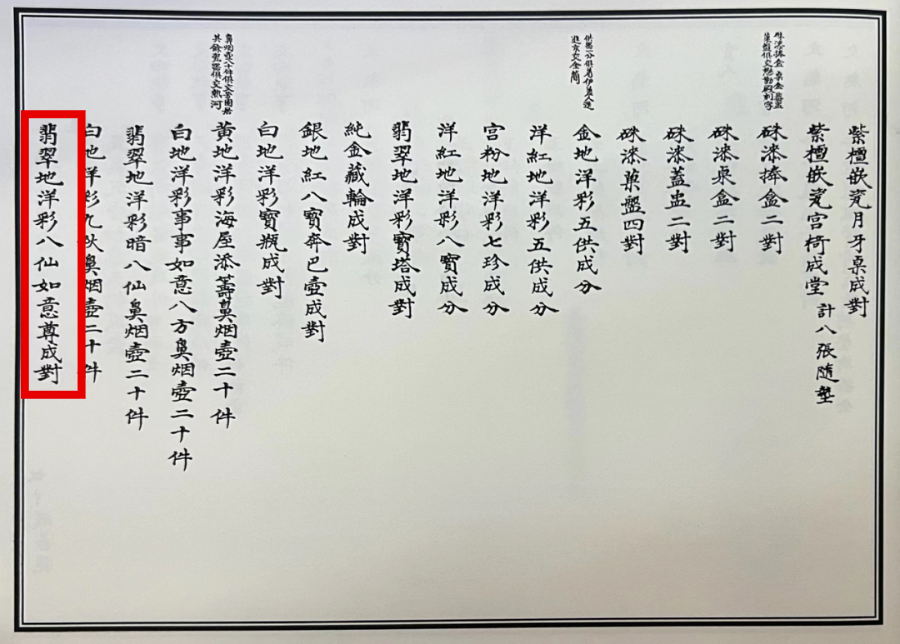 紫檀嵌瓷月牙桌成對
紫檀嵌瓷宫椅成堂 計八張隨墊
硃漆捧盒二對
硃漆桌盒二對
硃漆蓋盅二對
硃漆菓盤四對
金地洋彩五供成分
洋紅地洋彩五供成分
宫粉地洋彩七珍成分
洋紅地洋彩八寶成分
翡翠地洋彩寶塔成對
純金藏輪成對
銀地紅八寶奔巴壺成對
白地洋彩寶瓶成對
鼻烟壺六十件俱交
其餘瓷器俱交熱河
黃地洋彩海屋添籌鼻烟壺二十件
白地洋彩事事如意八方鼻烟壺二十件
翡翠地洋彩暗八仙鼻烟壺二十件
白地洋彩九秋鼻烟壺二十件
翡翠地洋彩八仙如意尊成對